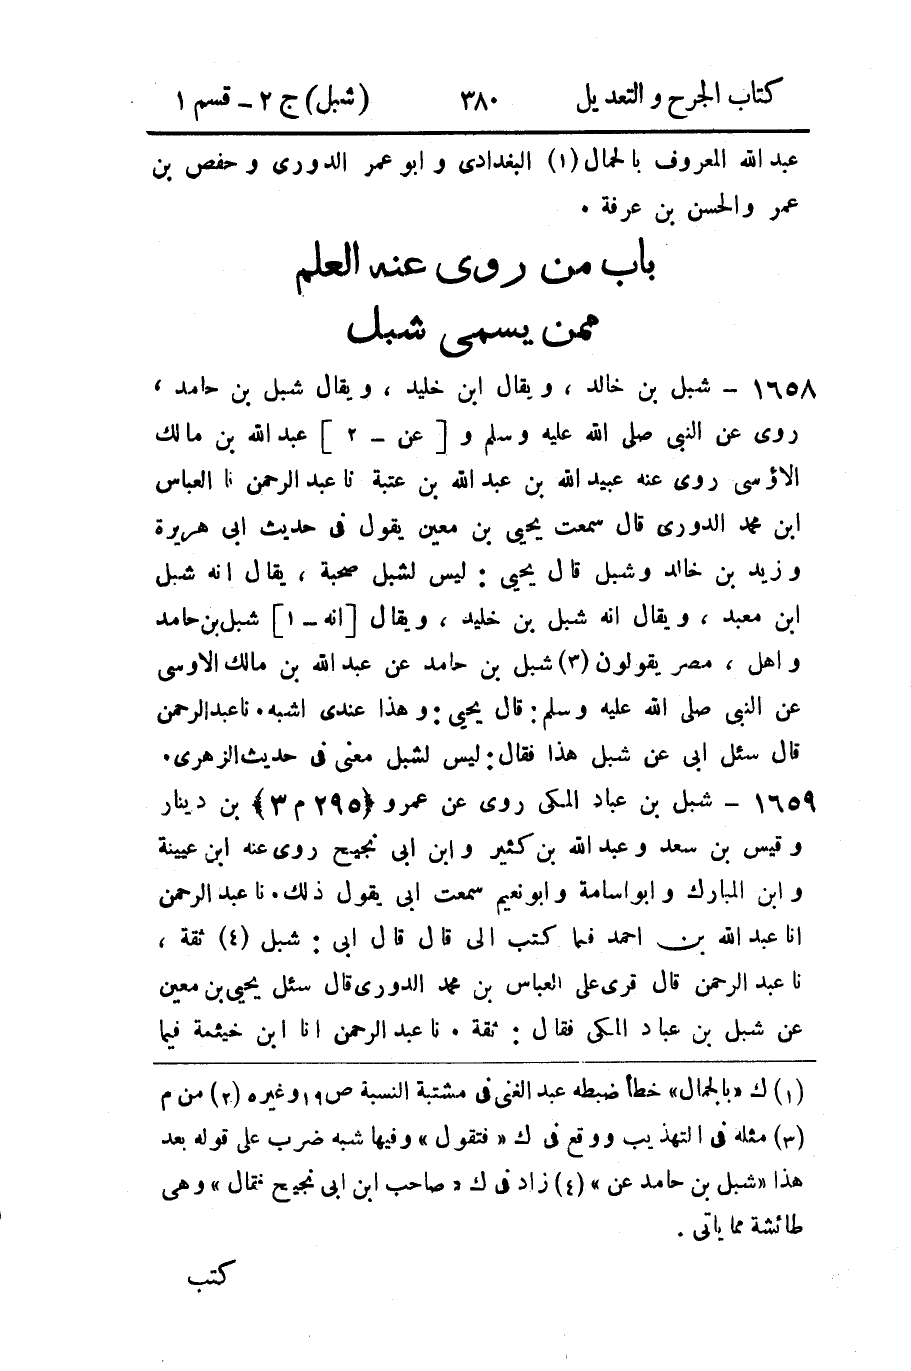 كتاب الجرح و التعديل ٣٨٠ (شبل) ج ٢ - قسم ١
عبد الله المعروف بالحمال (١) البغدادى و ابو عمر الدورى و حفص بن
عمر والحسن بن عرفة .
باب من روى عنه العلم
ممن يسمى شبل
١٦٥٨ - شبل بن خالد ، ويقال ابن خليد ، ويقال شبل بن حامد ،
روى عن النبى صلى الله عليه وسلم و [ عن - ٢ ] عبد الله بن مالك
الاؤسى روى عنه عبيد الله بن عبد الله بن عتبة نا عبد الرحمن نا العباس
ابن محمد الدورى قال سمعت يحيى بن معين يقول فى حديث ابى هريرة
و زيد بن خالد وشبل قال يحيى : ليس لشبل صحبة ، يقال انه شبل
ابن معبد ، ويقال انه شبل بن خليد ، ويقال [انه - ١] شبل بن حامد
و اهل ، مصر يقولون (٣) شبل بن حامد عن عبد الله بن مالك الاوسى
عن النبى صلى الله عليه وسلم : قال يحيى : وهذا عندى اشبه . نا عبد الرحمن
قال سئل ابى عن شبل هذا فقال : ليس لشبل معنى فى حديث الزهرى .
١٦٥٩ - شبل بن عباد المكى روى عن عمرو ﴿٢٩٥ م ٣﴾ بن دينار
و قيس بن سعد و عبد الله بن كثير و ابن ابى نجيح روى عنه ابن عيينة
و ابن المبارك و ابو اسامة و ابو نعيم سمعت ابى يقول ذلك . نا عبد الرحمن
انا عبد الله بن احمد فيما كتب الى قال قال ابى : شبل (٤) ثقة ،
نا عبد الرحمن قال قرى على العباس بن محمد الدورى قال سئل يحيى بن معين
عن شبل بن عباد المكى فقال : ثقة . نا عبد الرحمن انا ابن خيثمة فيما
(١) ك «بالجمال» خطأ ضبطه عبد الغنى فى مشتبة النسبة ص ١٩ وغيره (٢) من م
(٣) مثله فى التهذيب ووقع فى ك « فتقول » وفيها شبه ضرب على قوله بعد
هذا «شبل بن حامد عن » (٤) زاد فى ك « صاحب ابن ابى نجيح فقال » وهى
طائشة مما ياتى .
كتب